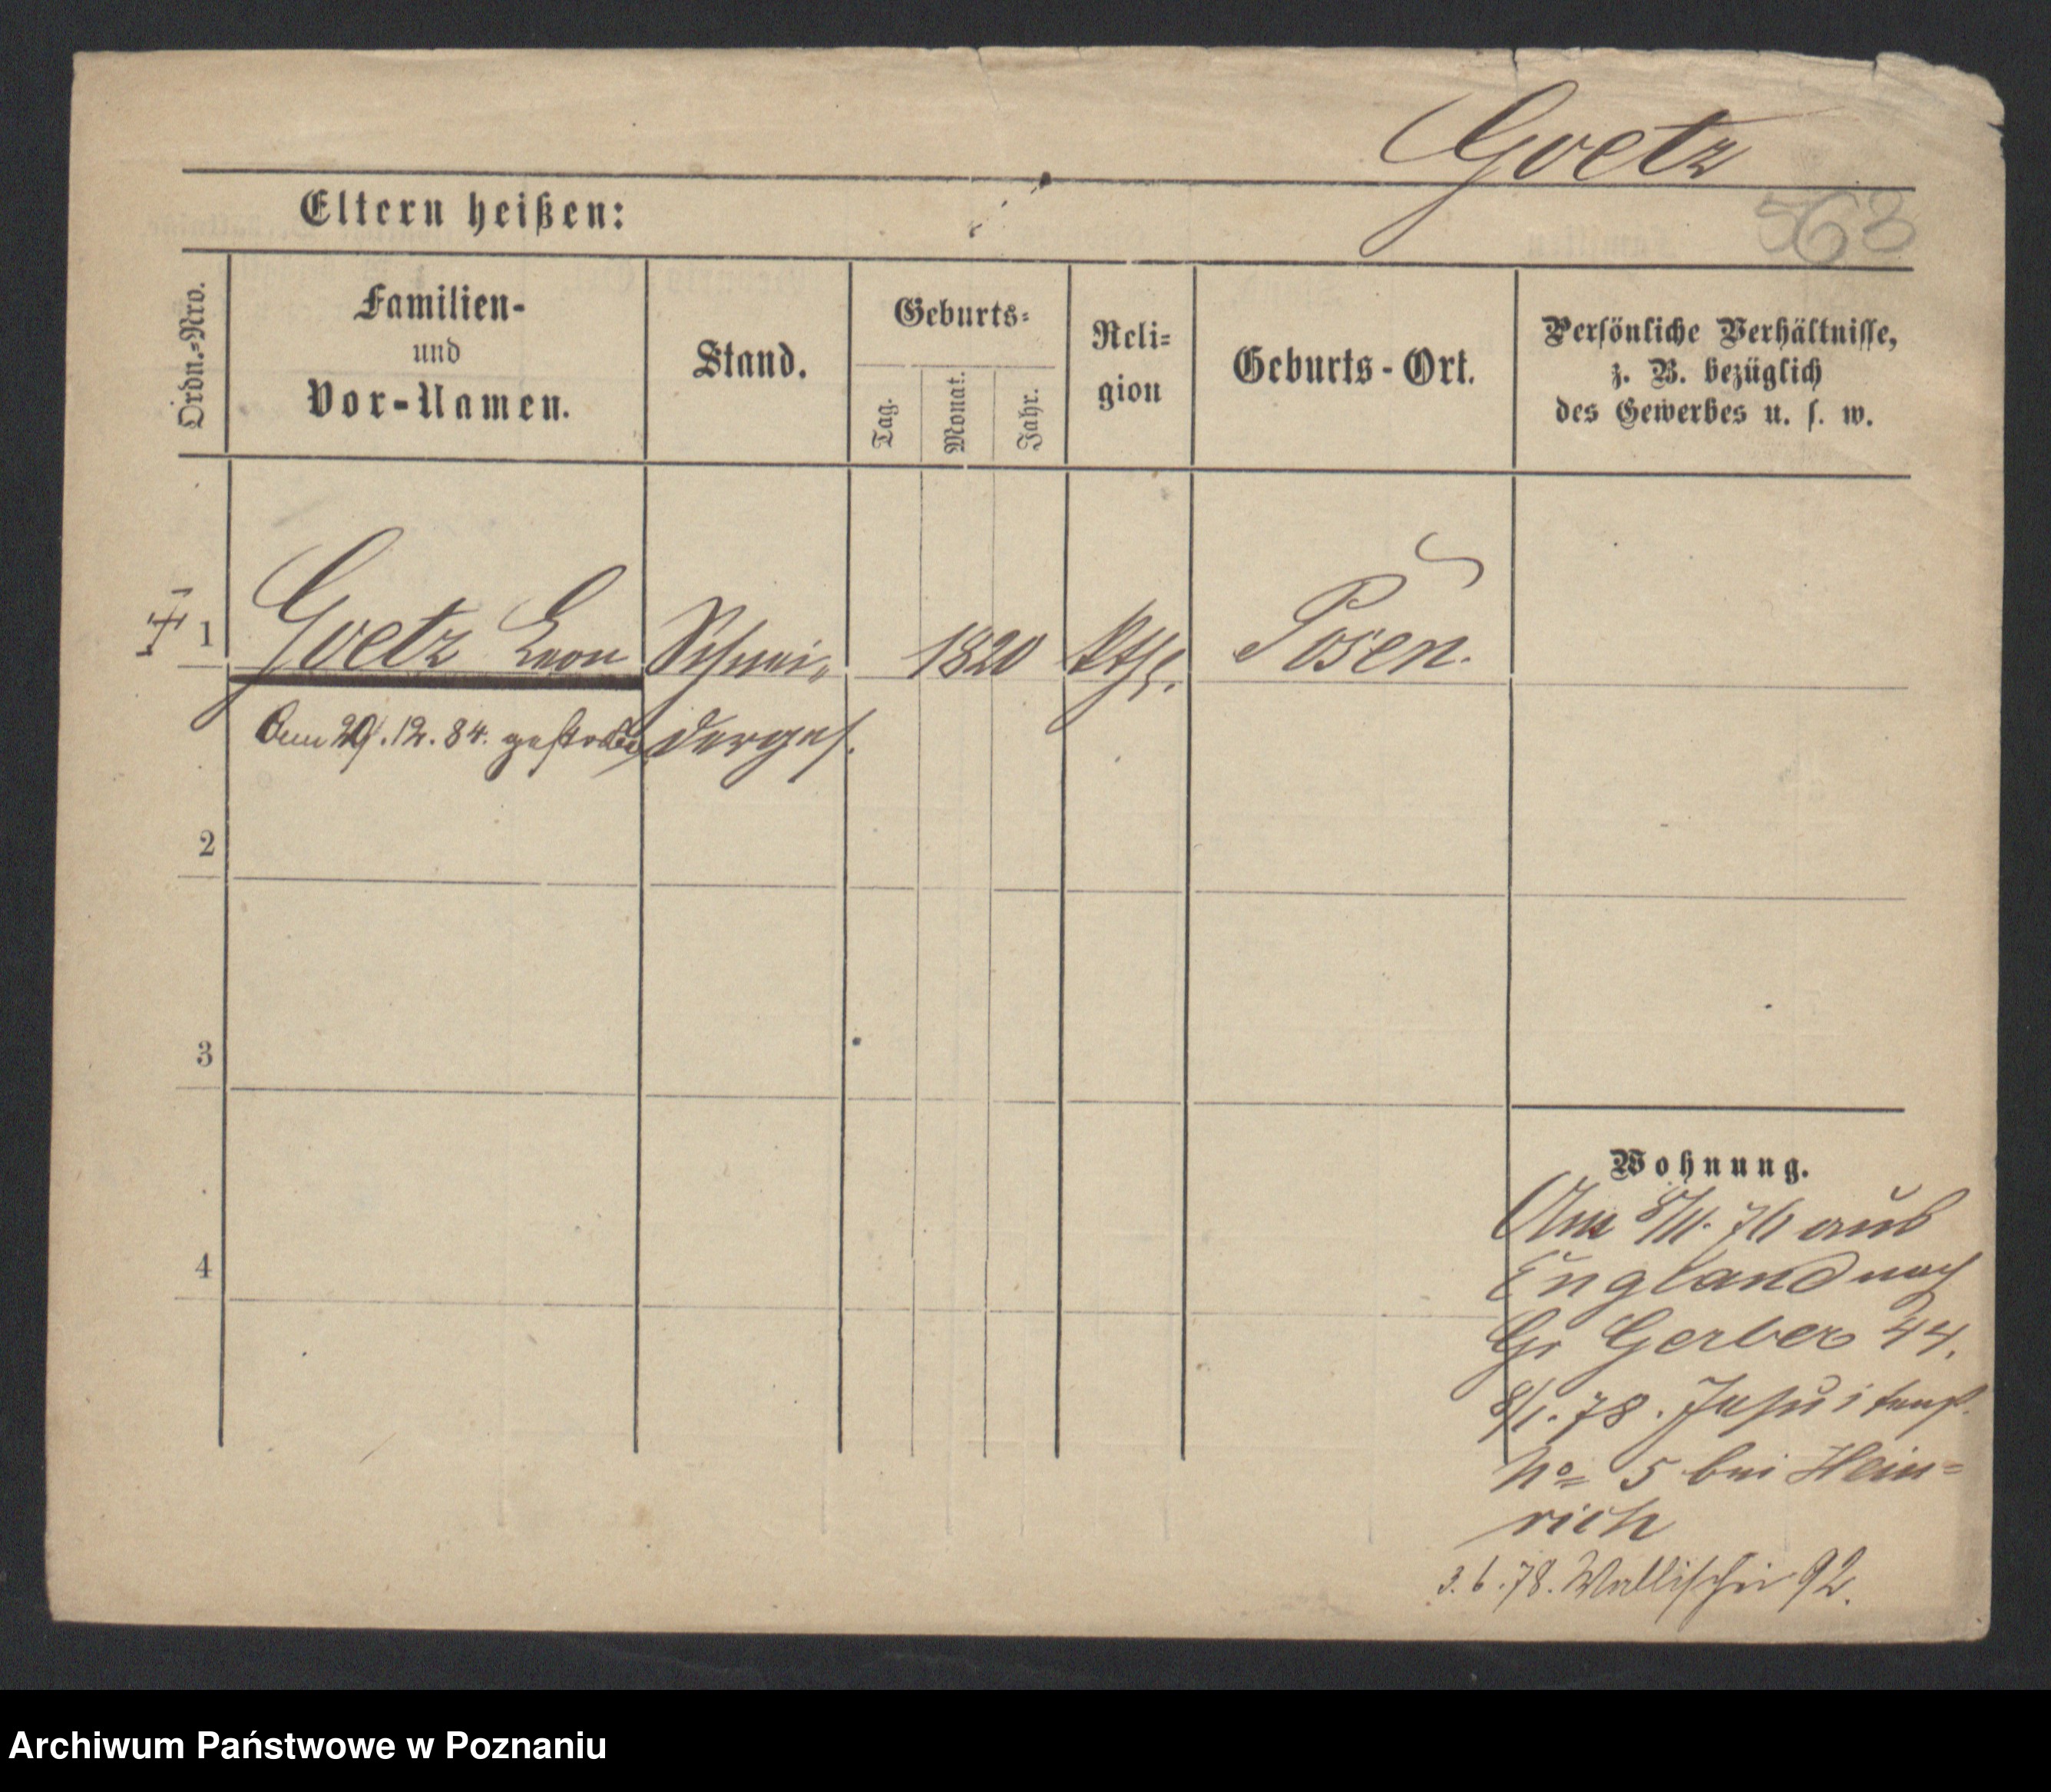 Goetz
563
Eltern heißen:
Ordn.=Nro.
Familien-
und
Vor-Namen.
Stand.
Geburts=
Tag.
Monat.
Jahr.
Reli=
gion
Geburts-Ort.
Persönliche Verhältnisse,
z. B. bezüglich
des Gewerbes u. s. w.
1 Goetz Leon Schnei„ 1820 kth. Posen.
Am 29.12.84. gestorben derges.
2
3
4
Wohnung.
Am 8/11. 76 aus
England nach
Gr Gerber 44.
8/1. 78. Jesuitenst.
No 5 bei Hein=
rich
3.6.78. Wallischei 92.
Archiwum Państwowe w Poznaniu